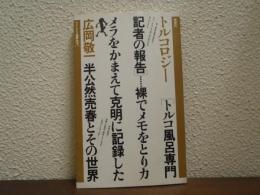 トルコロジー
トルコ風呂専門
記者の報告……裸でメモをとりカ
メラをかまえて克明に記録した
半公然売春とその世界
広岡敬一